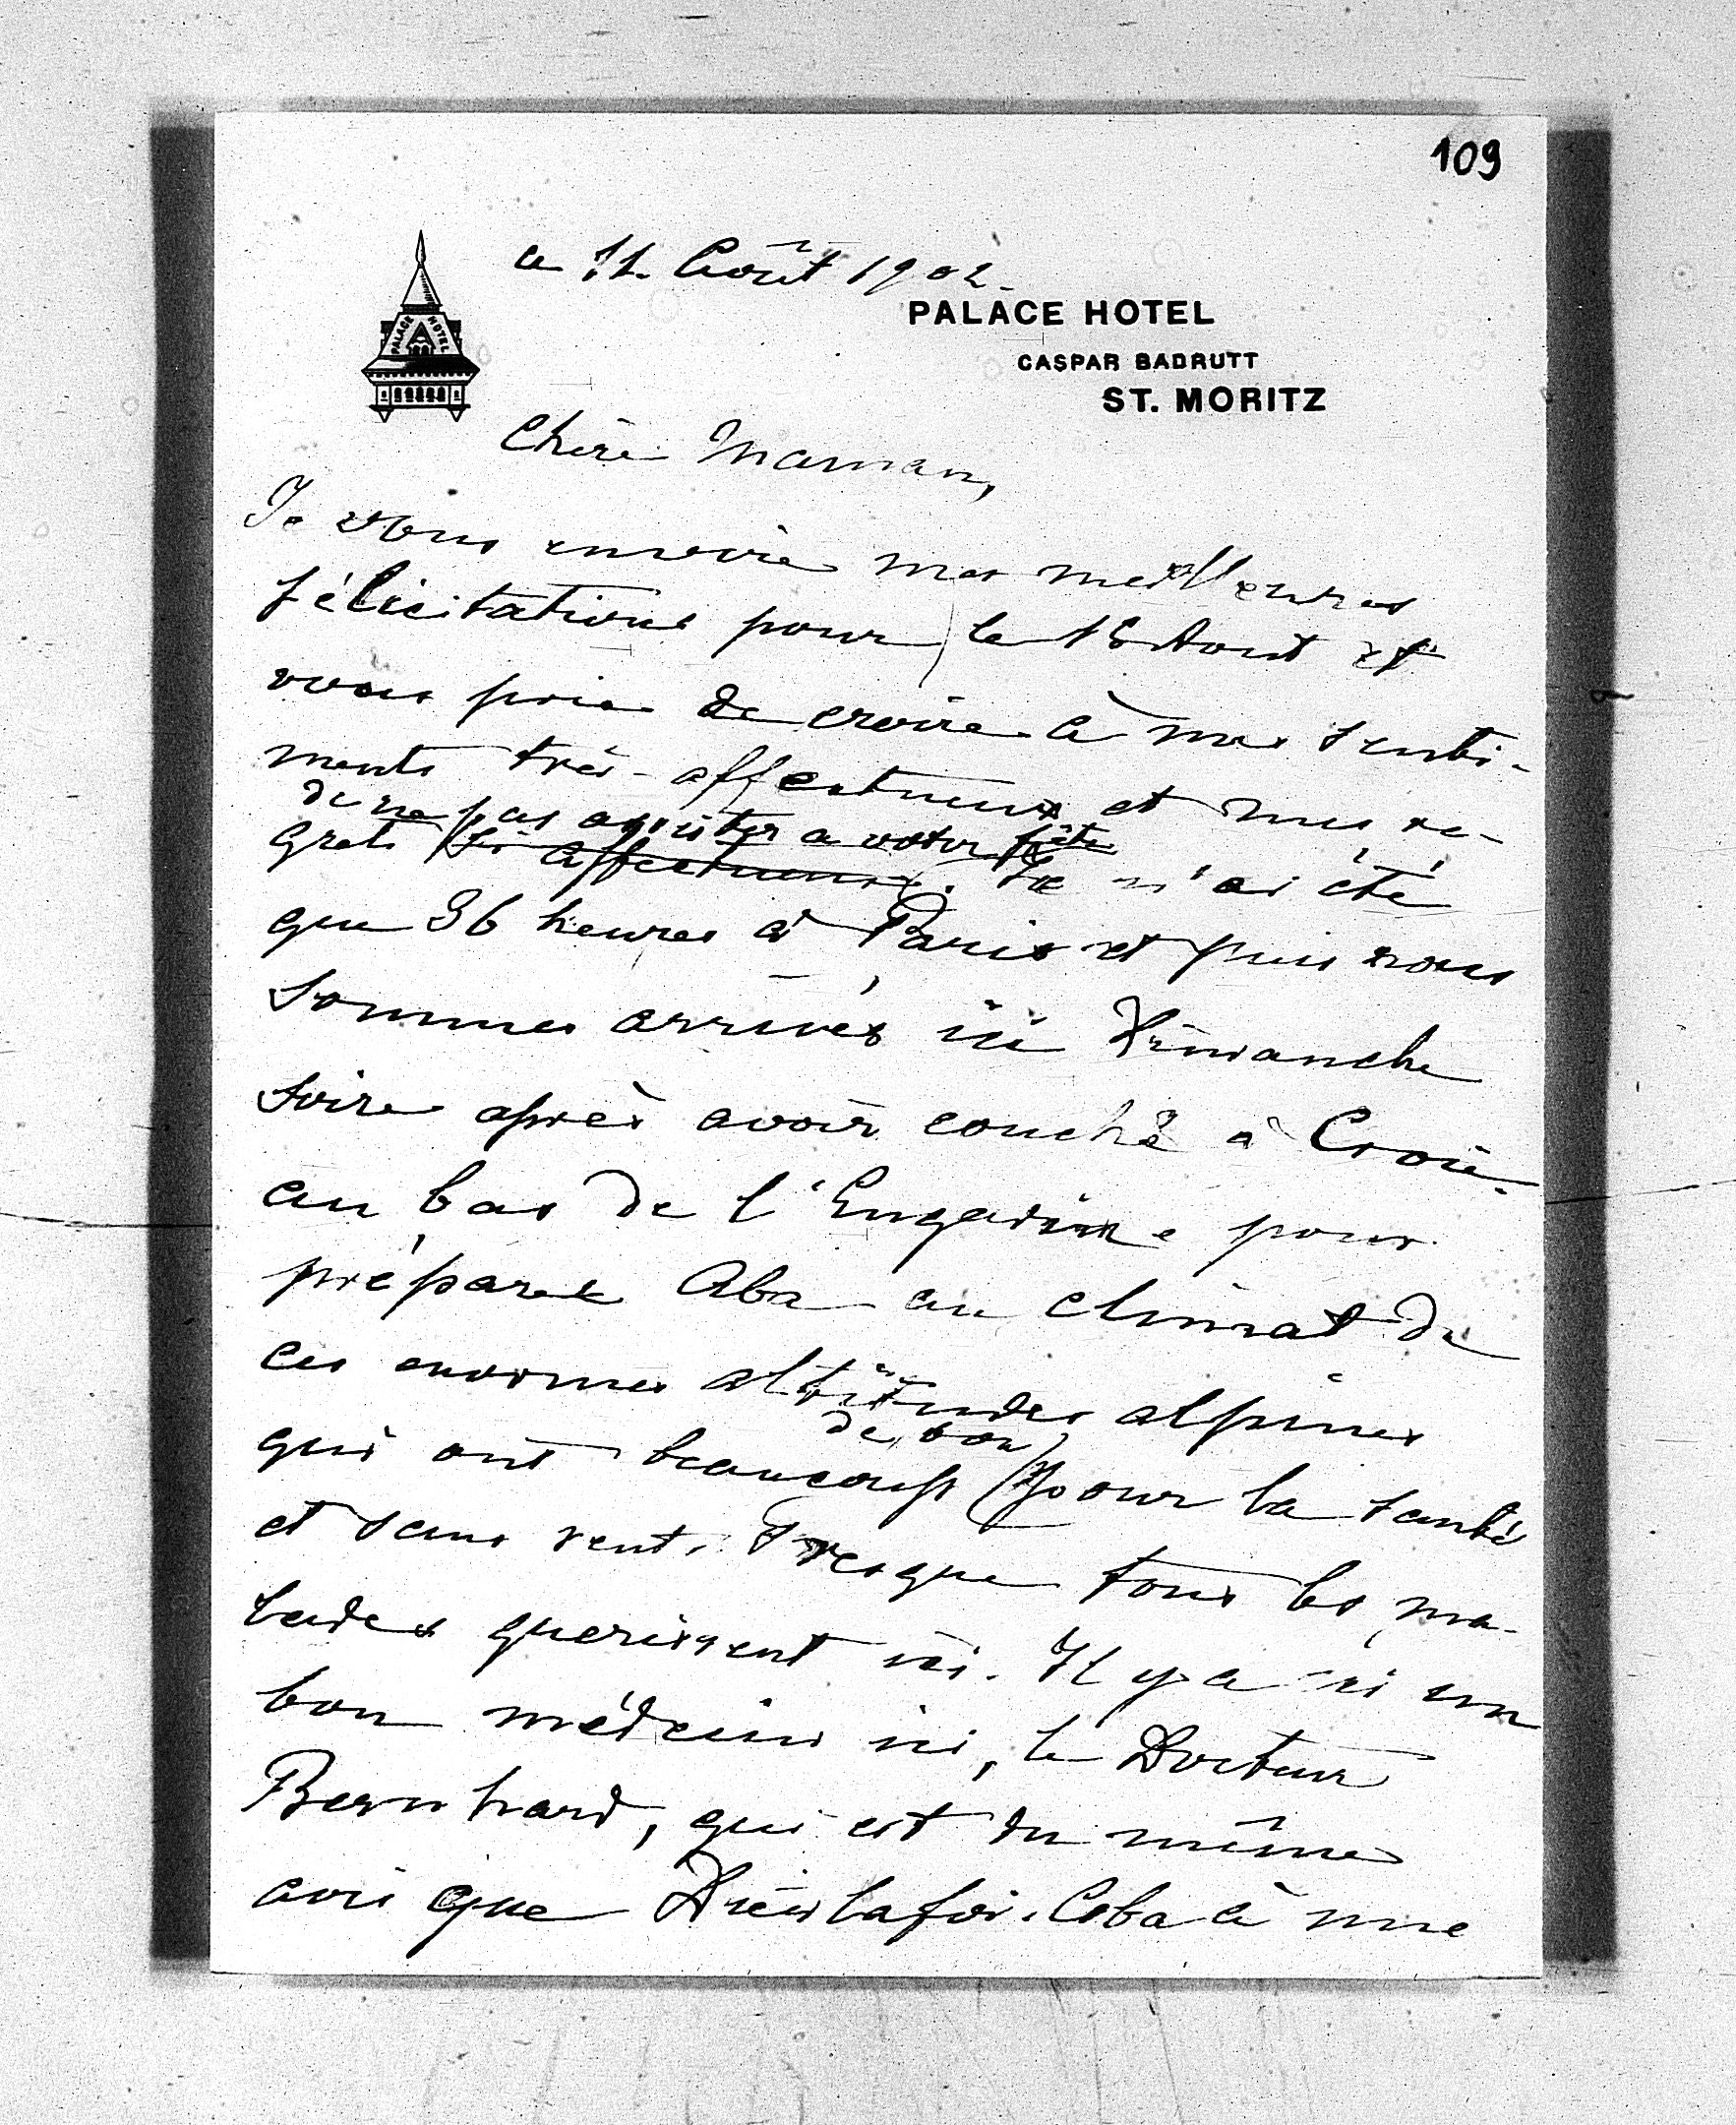 109
ce 11. Août 1902.
PALACE HOTEL
CASPAR BADRUTT
ST. MORITZ
PALACE HOTEL
Chère Maman,
Je vous envoie mes meilleures
félicitations pour le 15 Aout et
vous prie de croire à mes senti-
ments très-affectueux et mes re-
de ne pas assister a votre fête
grets si affectueux. Je n'ai été
que 36 heures à Paris et puis nous
sommes arrivés ici Dimanche
soire après avoir couché à
au bas de l'Engadine pour
préparer Aba au climat de
ces enormes altitudes alpines
de bon
qui ont beaucoup pour la santé
et sans vent. Presque tous les ma-
lades guerissent ici. Il y a ici un
bon médecin ici, le Docteur
Bernhard, qui est du même
avis que Dieulafoi. Aba à une